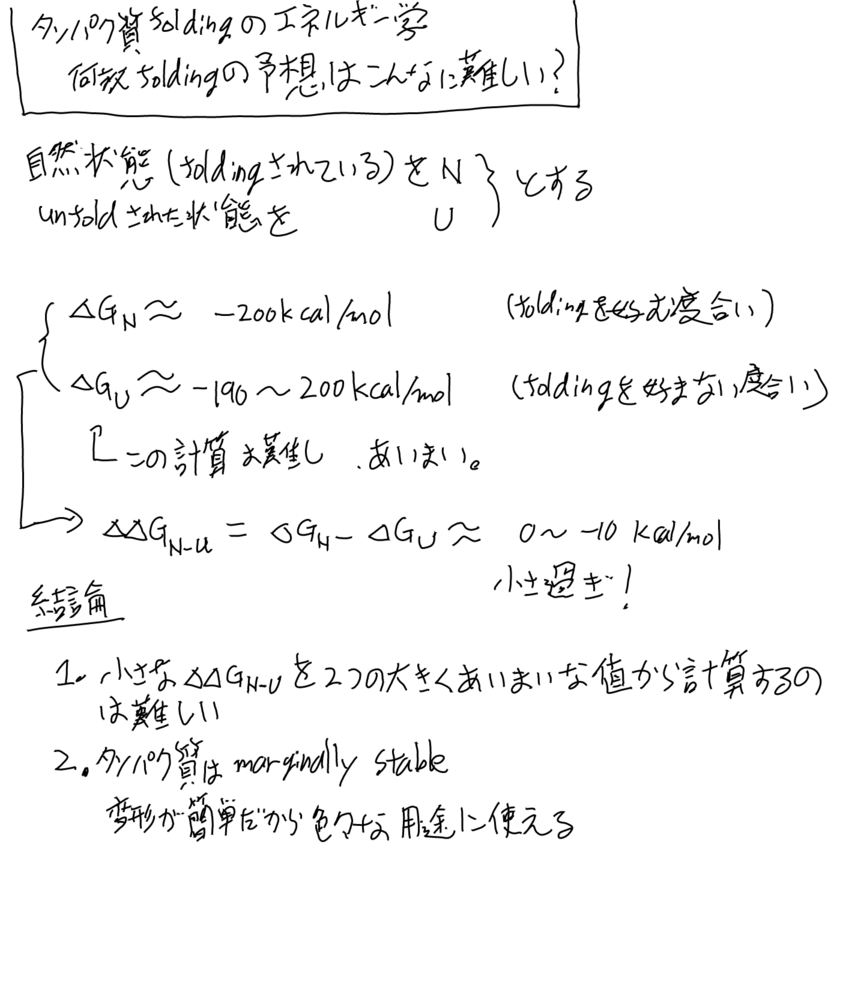 タンパク質foldingのエネルギー学
何故foldingの予想はこんなに難しい?
自然状態(foldingされている)をN
unfoldされた状態を U } とする
ΔG_N ≈ -200kcal/mol (foldingを好む度合い)
ΔG_U ≈ -190～200kcal/mol (foldingを好まない度合い)
この計算は難し、あいまい。
ΔΔG_N-U = ΔG_N - ΔG_U ≈ 0～-10 kcal/mol
小さ過ぎ!
結論
1. 小さなΔΔG_N-Uを2つの大きくあいまいな値から計算するの
は難しい
2. タンパク質は marginally stable
変形が簡単だから色々な用途に使える